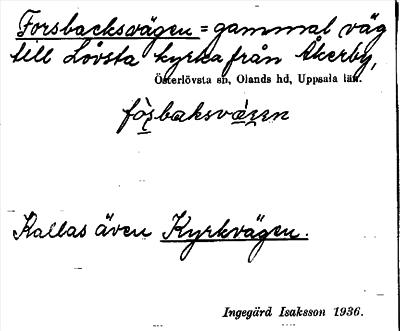 Forsbacksvägen = gammal väg
till Lövsta kyrka från Åkerby,
Österlövsta sn, Olands hd, Uppsala län.
Kallas även Kyrkvägen.
Ingegärd Isaksson 1936.